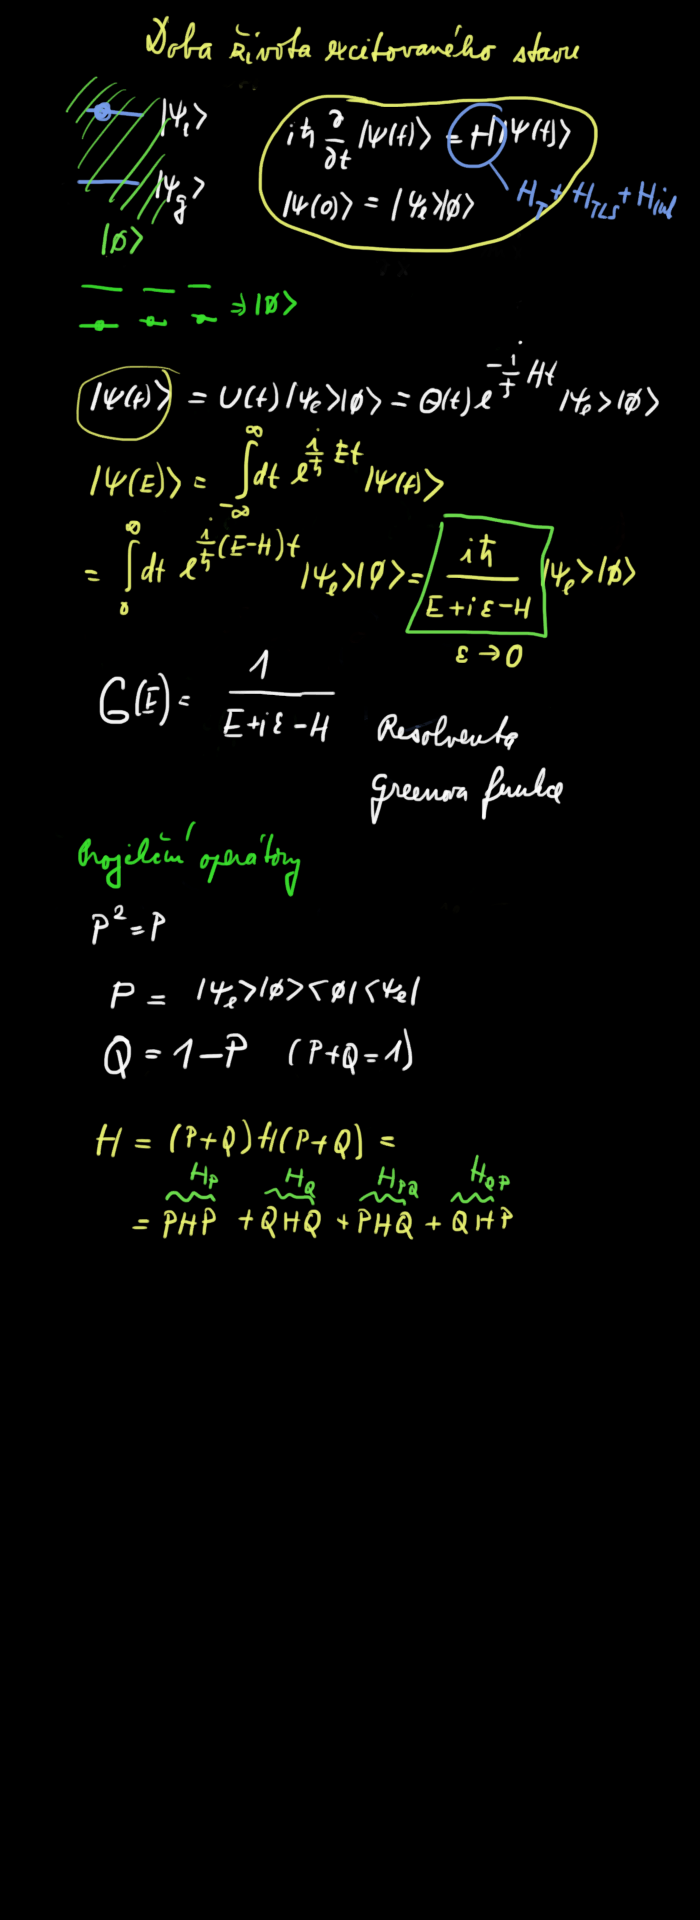 Doba života excitovaného stavu
|ψₑ⟩
iħ ∂/∂t |ψ(t)⟩ = H|ψ(t)⟩
|ψ_g⟩
|ψ(0)⟩ = |ψₑ⟩|ø⟩
H_T + H_TLS + H_int
|ø⟩
⇒ |ø⟩
|ψ(t)⟩ = U(t)|ψₑ⟩|ø⟩ = Θ(t) e^{-i/ħ Ht} |ψₑ⟩|ø⟩
|ψ(E)⟩ = ∫_{-∞}^{∞} dt e^{i/ħ Et} |ψ(t)⟩
= ∫_0^∞ dt e^{i/ħ (E-H)t} |ψₑ⟩|ø⟩ = iħ/(E+iε-H) |ψₑ⟩|ø⟩
ε → 0
G(E) = 1/(E+iε-H)
Resolventa
Greenova funkce
Projekční operátory
P² = P
P = |ψₑ⟩|ø⟩⟨ø|⟨ψₑ|
Q = 1-P (P+Q=1)
H = (P+Q)H(P+Q) =
H_P H_Q H_PQ H_QP
= PHP + QHQ + PHQ + QHP